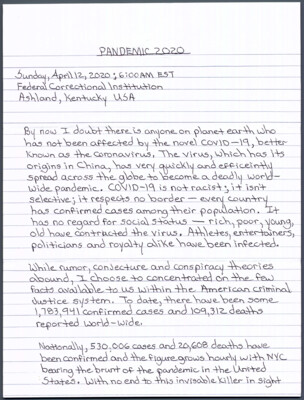 PANDEMIC 2020
Sunday, April 12, 2020; 6:00AM EST
Federal Correctional Institution
Ashland, Kentucky USA
By now I doubt there is anyone on planet earth who
has not been affected by the novel COVID-19, better
known as the coronavirus. The virus, which has its
origins in China, has very quickly and efficeintly
spread across the globe to become a deadly world-
wide pandemic. COVID-19 is not racist; it isn't
selective; it respects no border — every country
has confirmed cases among their population. It
has no regard for social status — rich, poor, young,
old have contracted the virus. Athletes, entertainers,
politicians and royalty alike have been infected.
While rumor, conjecture and conspiracy theories
abound, I choose to concentrate on the few
facts available to us within the American criminal
justice system. To date, there have been some
1,783,941 confirmed cases and 109,312 deaths
reported world-wide.
Nationally, 530,006 cases and 20,608 deaths have
been confirmed and the figure grows hourly with NYC
bearing the brunt of the pandemic in the United
States. With no end to this invisible killer in sight